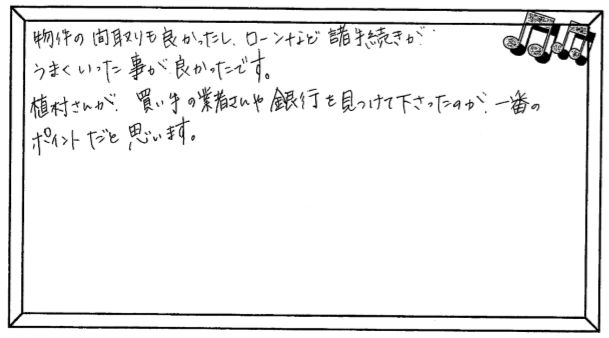 物件の間取りも良かったし、ローンなど諸手続きが
うまくいった事が良かったです。
植村さんが、買い手の業者さんや銀行を見つけて下さったのが、一番の
ポイントだと思います。